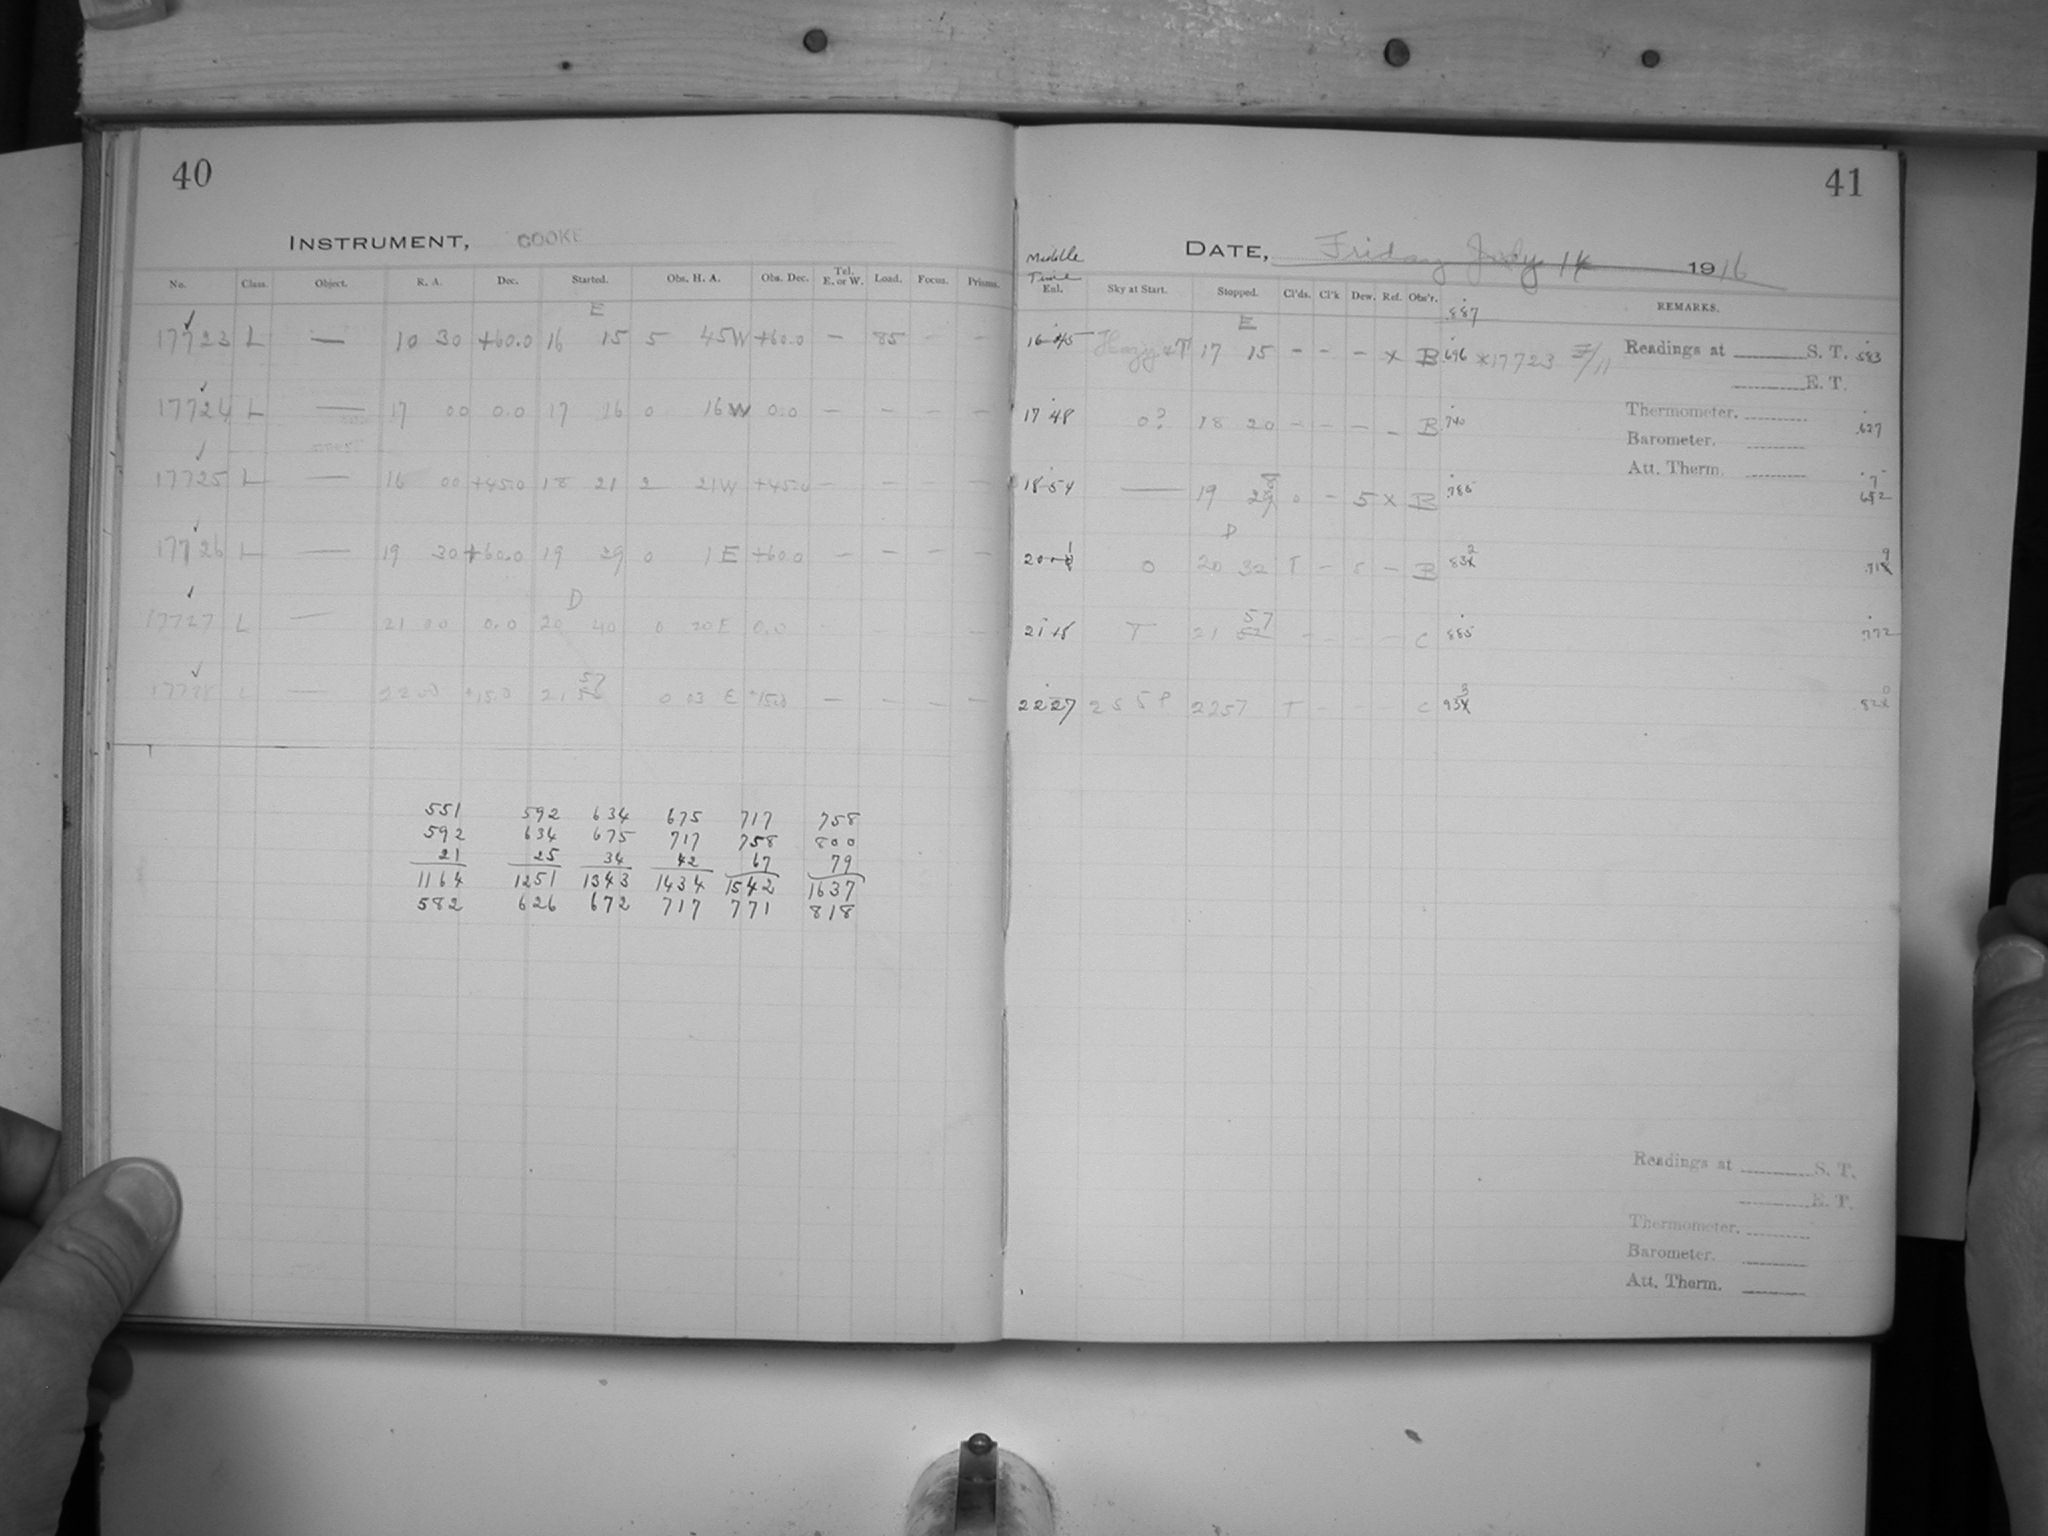 40
INSTRUMENT, COOKE
No. Class. Object. R. A. Dec. Started. Obs. H. A. Obs. Dec. Tel. E. or W. Load. Focus. Prisms.
E
17723 L — 10 30 +60.0 16 15 5 45W +60.0 — 85 – –
17724 L — 17 00 0.0 17 16 0 16W 0.0 – – – –
17725 L — 16 00 +45.0 18 21 2 21W +45.0 – – – –
17726 L — 19 30 +60.0 19 29 0 1 E +60.0 – – – –
D
17727 L — 21 00 0.0 20 40 0 20 E 0.0 – – – –
57
17728 L — 22 00 +15.0 21 0 03 E +15.0 – – – –
551 592 634 675 717 758
592 634 675 717 758 800
21 25 34 42 67 79
1164 1251 1343 1434 1542 1637
582 626 672 717 771 818
41
DATE, Friday July 14 1916
Middle
Time
Exl. Sky at Start. Stopped. Cl'ds. Cl'k Dew. Ref. Obs'r. REMARKS.
.887
E
16 45 Hazy + T 17 15 – – – x B .696 *17723 Readings at S. T. .583
E. T.
17 48 0? 18 20 – – – – B .740 Thermometer. .627
Barometer.
Att. Therm.
18 54 — 19 0 – 5 x B .786
D
20 0 20 32 T – 5 – B 832 .719
57
21 18 T 21 52 – – – – C .885 .772
22 27 2257 T – – – C 933 820
Readings at S. T.
E. T.
Thermometer.
Barometer.
Att. Therm.